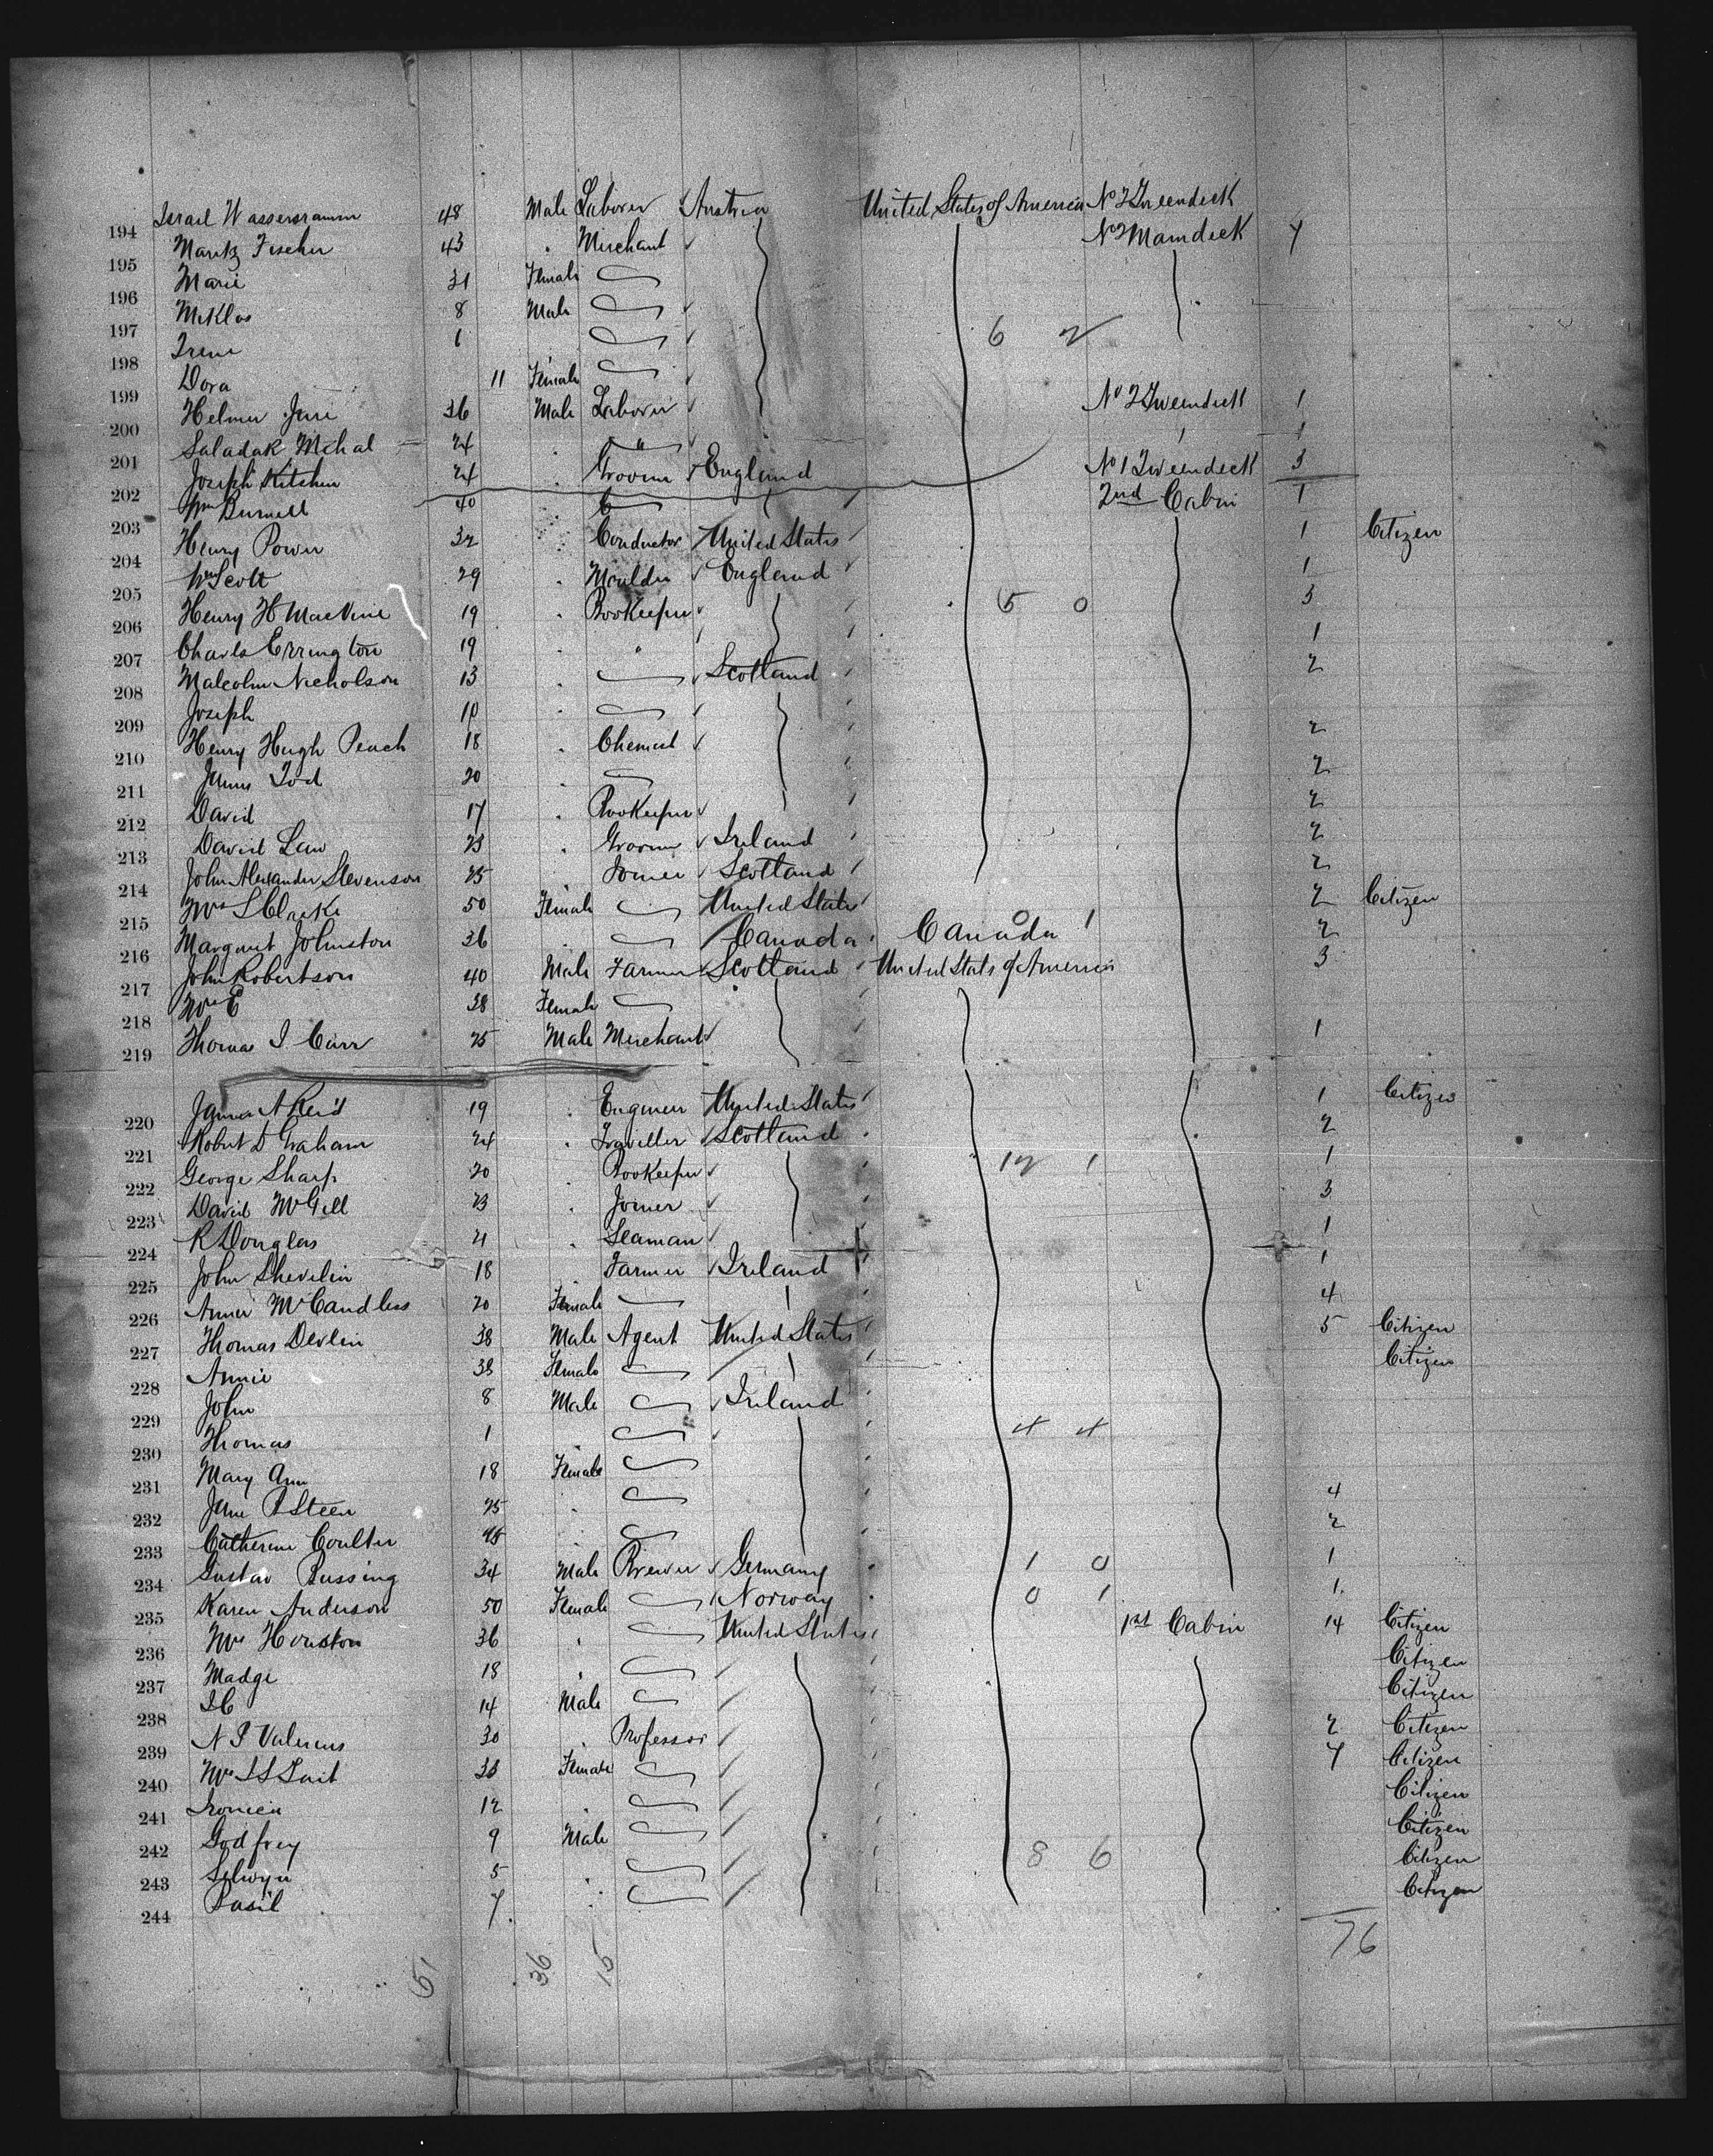 194 Israel Wassersramm 48 Male Laborer Austria United States of America No 2 Tweendeck
195 Moritz Fischer 43 " Merchant No 2 Maindeck 7
196 Marie 31 Female
197 Miklos 8 Male
198 Irene 1 " 6 2
199 Dora 11 Female
200 Helmer Jure 36 Male Laborer No 2 Tweendeck 1
201 Saladak Mihal 24 " " 1
202 Joseph Kitchen 24 " Groom England No 1 Tweendeck 3
203 Wm Burnell 40 " 2nd Cabin 1
204 Henry Power 32 " Conductor United States 1 Citizen
205 Wm Scott 29 " Moulder England 1
206 Henry H MacVine 19 " Bookeeper 5 0 3
207 Charles Errington 19 " " 1
208 Malcolm Nicholson 13 " Scotland 2
209 Joseph 10 "
210 Henry Hugh Peach 18 " Chemist 2
211 James Tod 20 " 2
212 David 17 " Bookeeper 2
213 David Law 23 " Groom Ireland 2
214 John Alexander Stevenson 25 Joiner Scotland 2
215 Mrs S Clarke 50 Female United States 2 Citizen
216 Margaret Johnston 36 " Canada Canada 0 1 2
217 John Robertson 40 Male Farmer Scotland United States of America 3
218 Mrs E 38 Female
219 Thomas J Carr 25 Male Merchant 1
220 James A Reid 19 " Engineer United States 1 Citizen
221 Robert D Graham 24 " Traveller Scotland 2
222 George Sharp 20 Bookeeper 12 1 1
223 David McGill 23 " Joiner 3
224 R Douglas 21 " Seaman 1
225 John Shevelin 18 Farmer Ireland 1
226 Annie McCandless 20 Female 4
227 Thomas Devlin 38 Male Agent United States 5 Citizen
228 Annie 38 Female Citizen
229 John 8 Male Ireland
230 Thomas 1 " 4 4
231 Mary Ann 18 Female
232 Jane P Steen 25 " 4
233 Catherine Coulter 45 " 2
234 Gustav Bussing 34 Male Brewer Germany 1 0 1
235 Karen Anderson 50 Female Norway 0 1 1
236 Mrs Houston 36 " United States 1st Cabin 14 Citizen
237 Madge 18 " Citizen
238 J C 14 Male Citizen
239 N P Valerius 30 Professor 2 Citizen
240 Mrs S S Tait 38 Female 7 Citizen
241 12 " Citizen
242 Godfrey 9 Male Citizen
243 Selwyn 5 " 8 6 Citizen
244 Basil 7 " Citizen
76
51 36 15